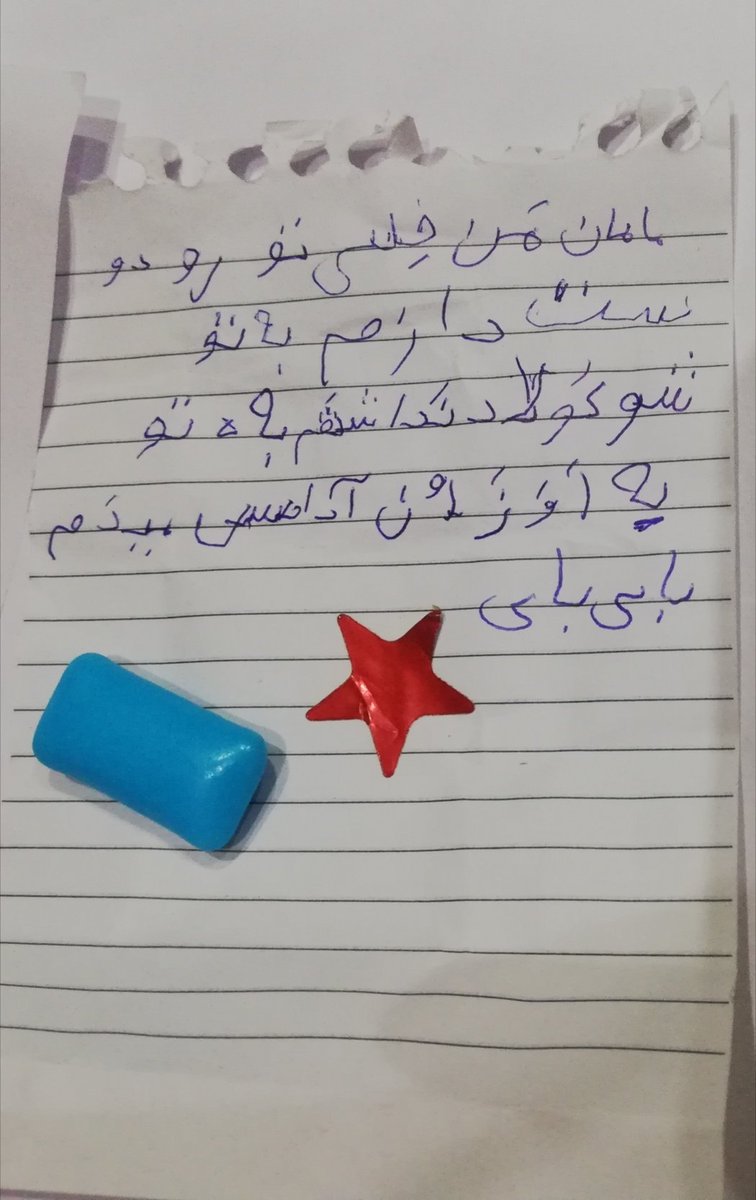 مامان مَن خِیلی تو رو دو
ست دارَم بِه تو
شوکولاد نَداشتَم بِه تو
یِه آدامس بِدَم
بای بای